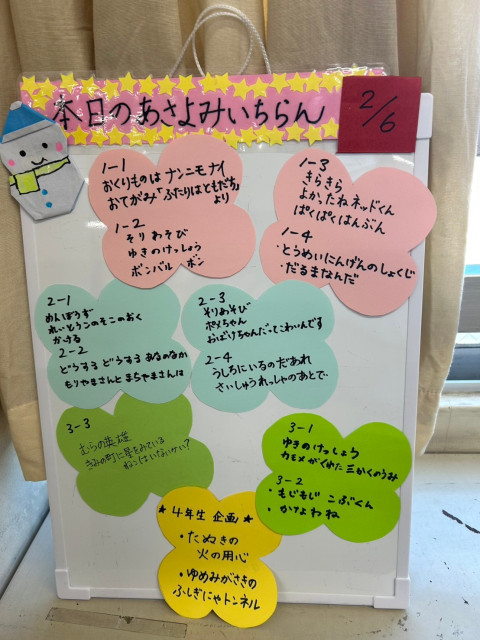 本日のあさよみいちらん
2/6
1-1
おくりものは ナンニモナイ
おてがみ「ふたりはともだち」
より
1-2
そりあそび
ゆきのけっしょう
ボンバル・ボン
1-3
きらきら
よかったねネッドくん
ぱくぱくはんぶん
1-4
・とうめいにんげんのしょくじ
・だるまなんだ
2-1
めんぼうず
れいとうこのそこのおく
かける
2-2
どうする どうする あなのなか
もりやまさんと まちやまさんは
2-3
そりあそび
ポメちゃん
おばけちゃんだってこわいんです
2-4
うしろにいるのだあれ
さいしゅうれっしゃのあとで
3-3
むらの英雄
うみの町に星をみている
ねこはいないかい?
3-1
ゆきのけっしょう
カモメがくれた三かくのうみ
3-2
・もじもじ こぶくん
・かさよわね
★4年生 企画★
・たぬきの
火の用心
・ゆめみがさきの
ふしぎにゃトンネル